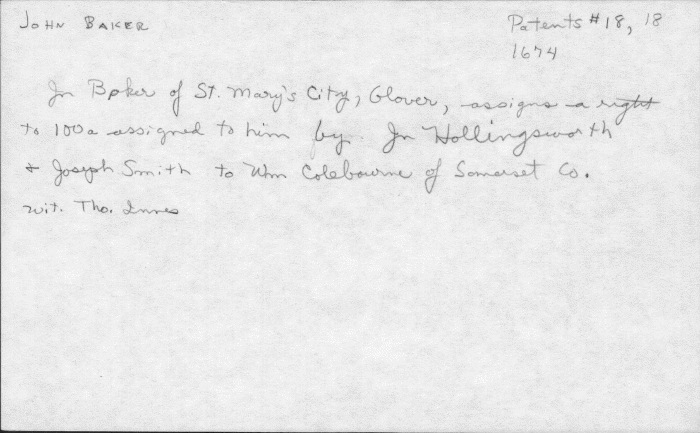 JOHN BAKER
Patents #18, 18
1674
Jn Baker of St. Mary's City, Glover, assigns a right
to 100a assigned to him by Jn Hollingsworth
& Joseph Smith to Wm Colebourne of Somerset Co.
wit. Tho. Innes